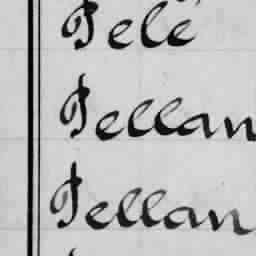 Pelé
Pellan
Pellan